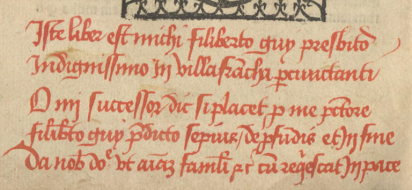 Iste liber est michi filiberto guy presbitō
Indignissimo In villafrāchi pcunctanti
O mi successor dic si placet p me pctore
filibto guy pdicto sepius de pfūdis et In fine
Da nob doe vt aīaz famli &c cū reqescat In pace